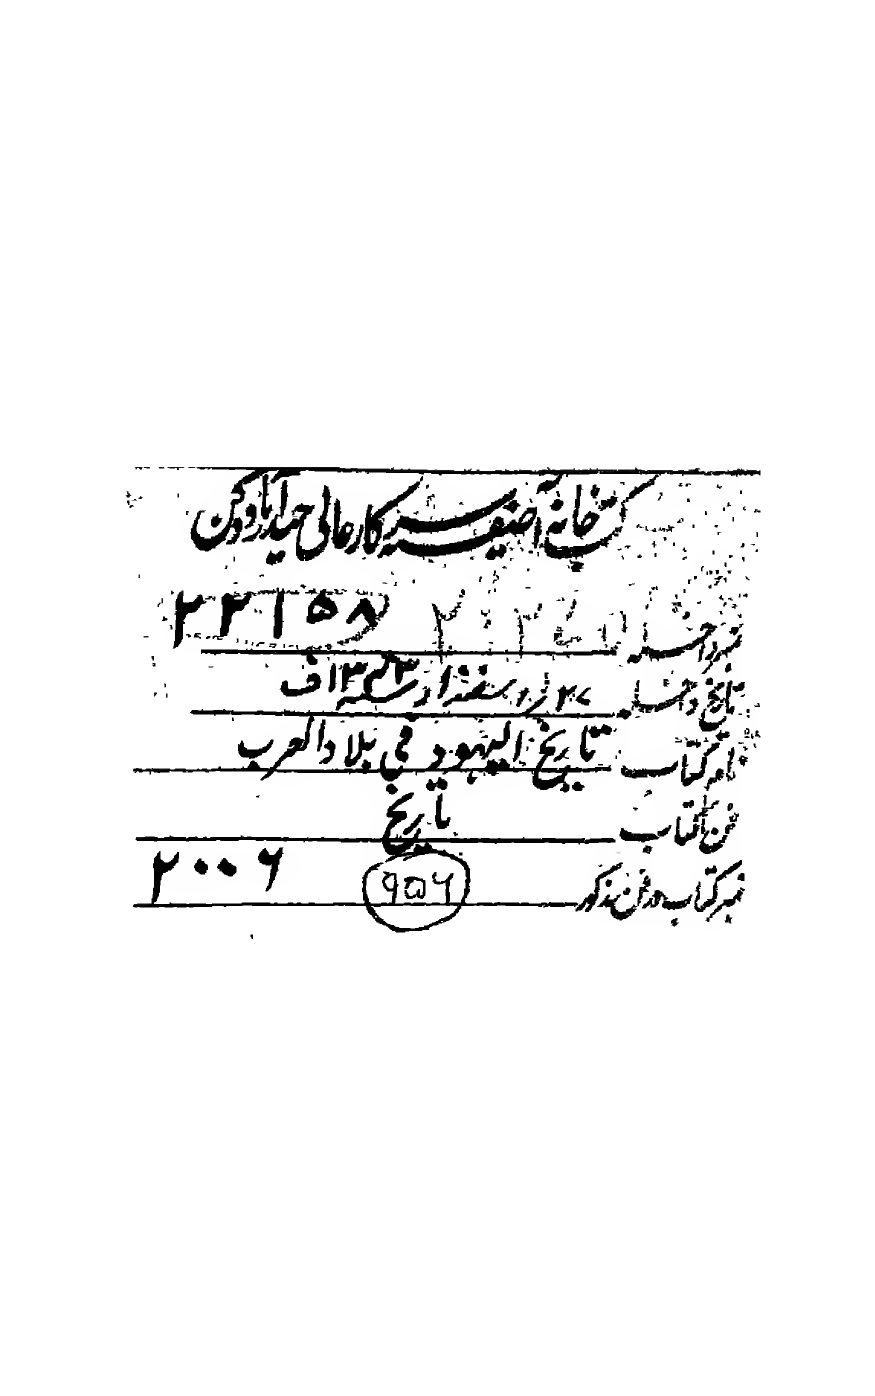 کتب خانہ آصفیہ سرکار عالی حیدرآباد دکن
نمبر داخلہ ۲۲۱۵۸
تاریخ داخلہ ۲۷ اسفندار سنہ ف
نام کتاب تاریخ الیہود فی بلاد العرب
فن کتاب تاریخ
نمبر کتاب در فن مذکور ۹۵۶ ۲۰۰۶